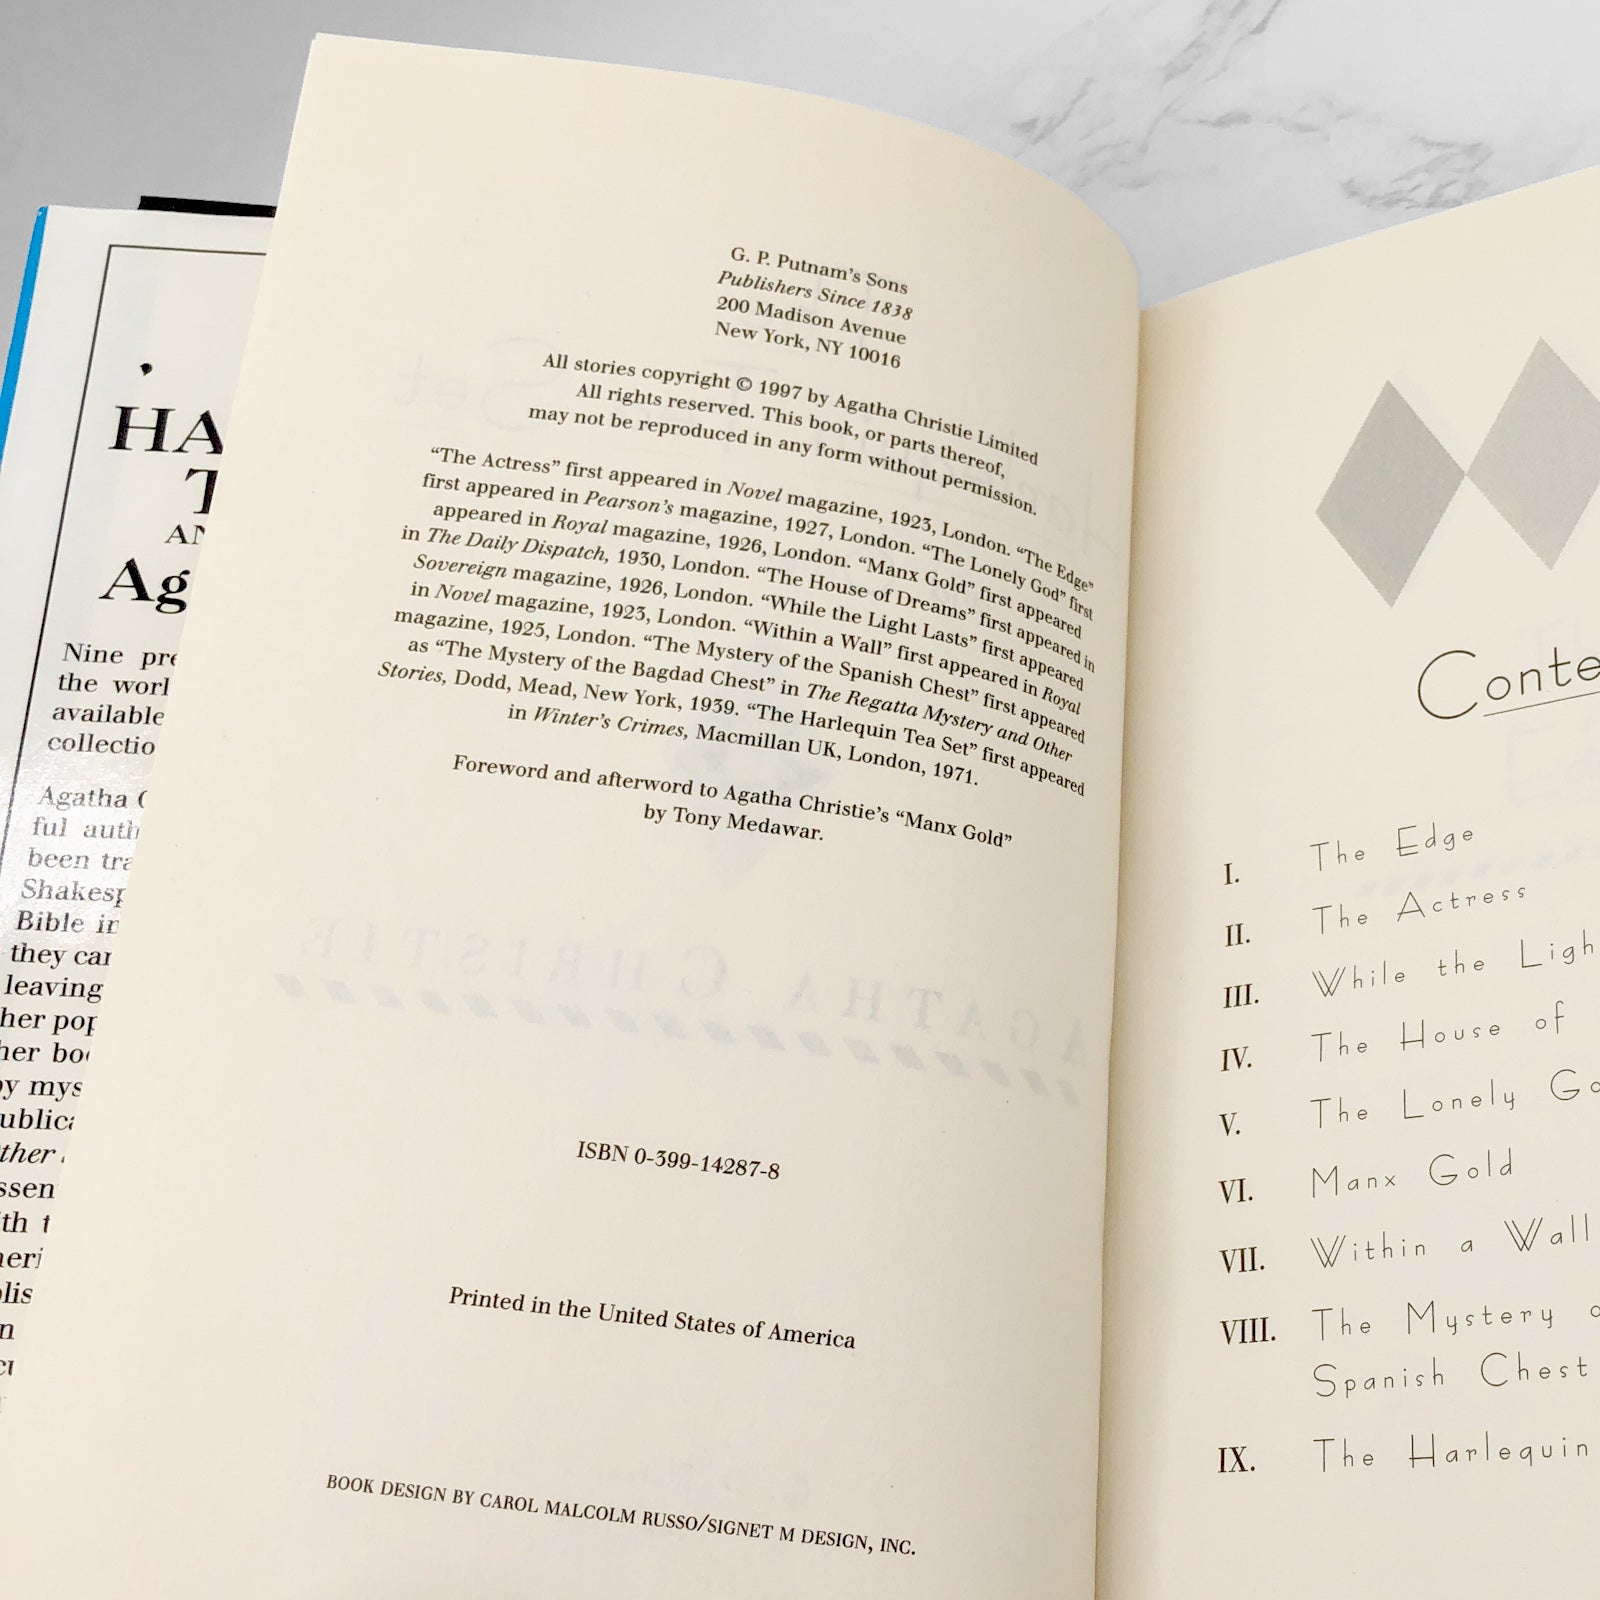 HA
T
AN
Ag
Nine pre
the worl
available
collectio
Agatha C
ful auth
been tra
Shakesp
Bible in
they can
leaving
her pop
her boo
by mys
ublica
ther
ssen
th t
meri
lis
n
G. P. Putnam's Sons
Publishers Since 1838
200 Madison Avenue
New York, NY 10016
All stories copyright © 1997 by Agatha Christie Limited
All rights reserved. This book, or parts thereof,
may not be reproduced in any form without permission.
“The Actress” first appeared in Novel magazine, 1923, London. “The Edge”
first appeared in Pearson's magazine, 1927, London. “The Lonely God” first
appeared in Royal magazine, 1926, London. “Manx Gold” first appeared
in The Daily Dispatch, 1930, London. “The House of Dreams” first appeared in
Sovereign magazine, 1926, London. “While the Light Lasts” first appeared
in Novel magazine, 1923, London. “Within a Wall” first appeared in Royal
magazine, 1925, London. “The Mystery of the Spanish Chest” first appeared
as “The Mystery of the Bagdad Chest” in The Regatta Mystery and Other
Stories, Dodd, Mead, New York, 1939. “The Harlequin Tea Set” first appeared
in Winter's Crimes, Macmillan UK, London, 1971.
Foreword and afterword to Agatha Christie's “Manx Gold”
by Tony Medawar.
AGATHA CHRISTIE
ISBN 0-399-14287-8
Printed in the United States of America
BOOK DESIGN BY CAROL MALCOLM RUSSO/SIGNET M DESIGN, INC.
Conte
I. The Edge
II. The Actress
III. While the Ligh
IV. The House of
V. The Lonely Go
VI. Manx Gold
VII. Within a Wall
VIII. The Mystery o
Spanish Chest
IX. The Harlequin